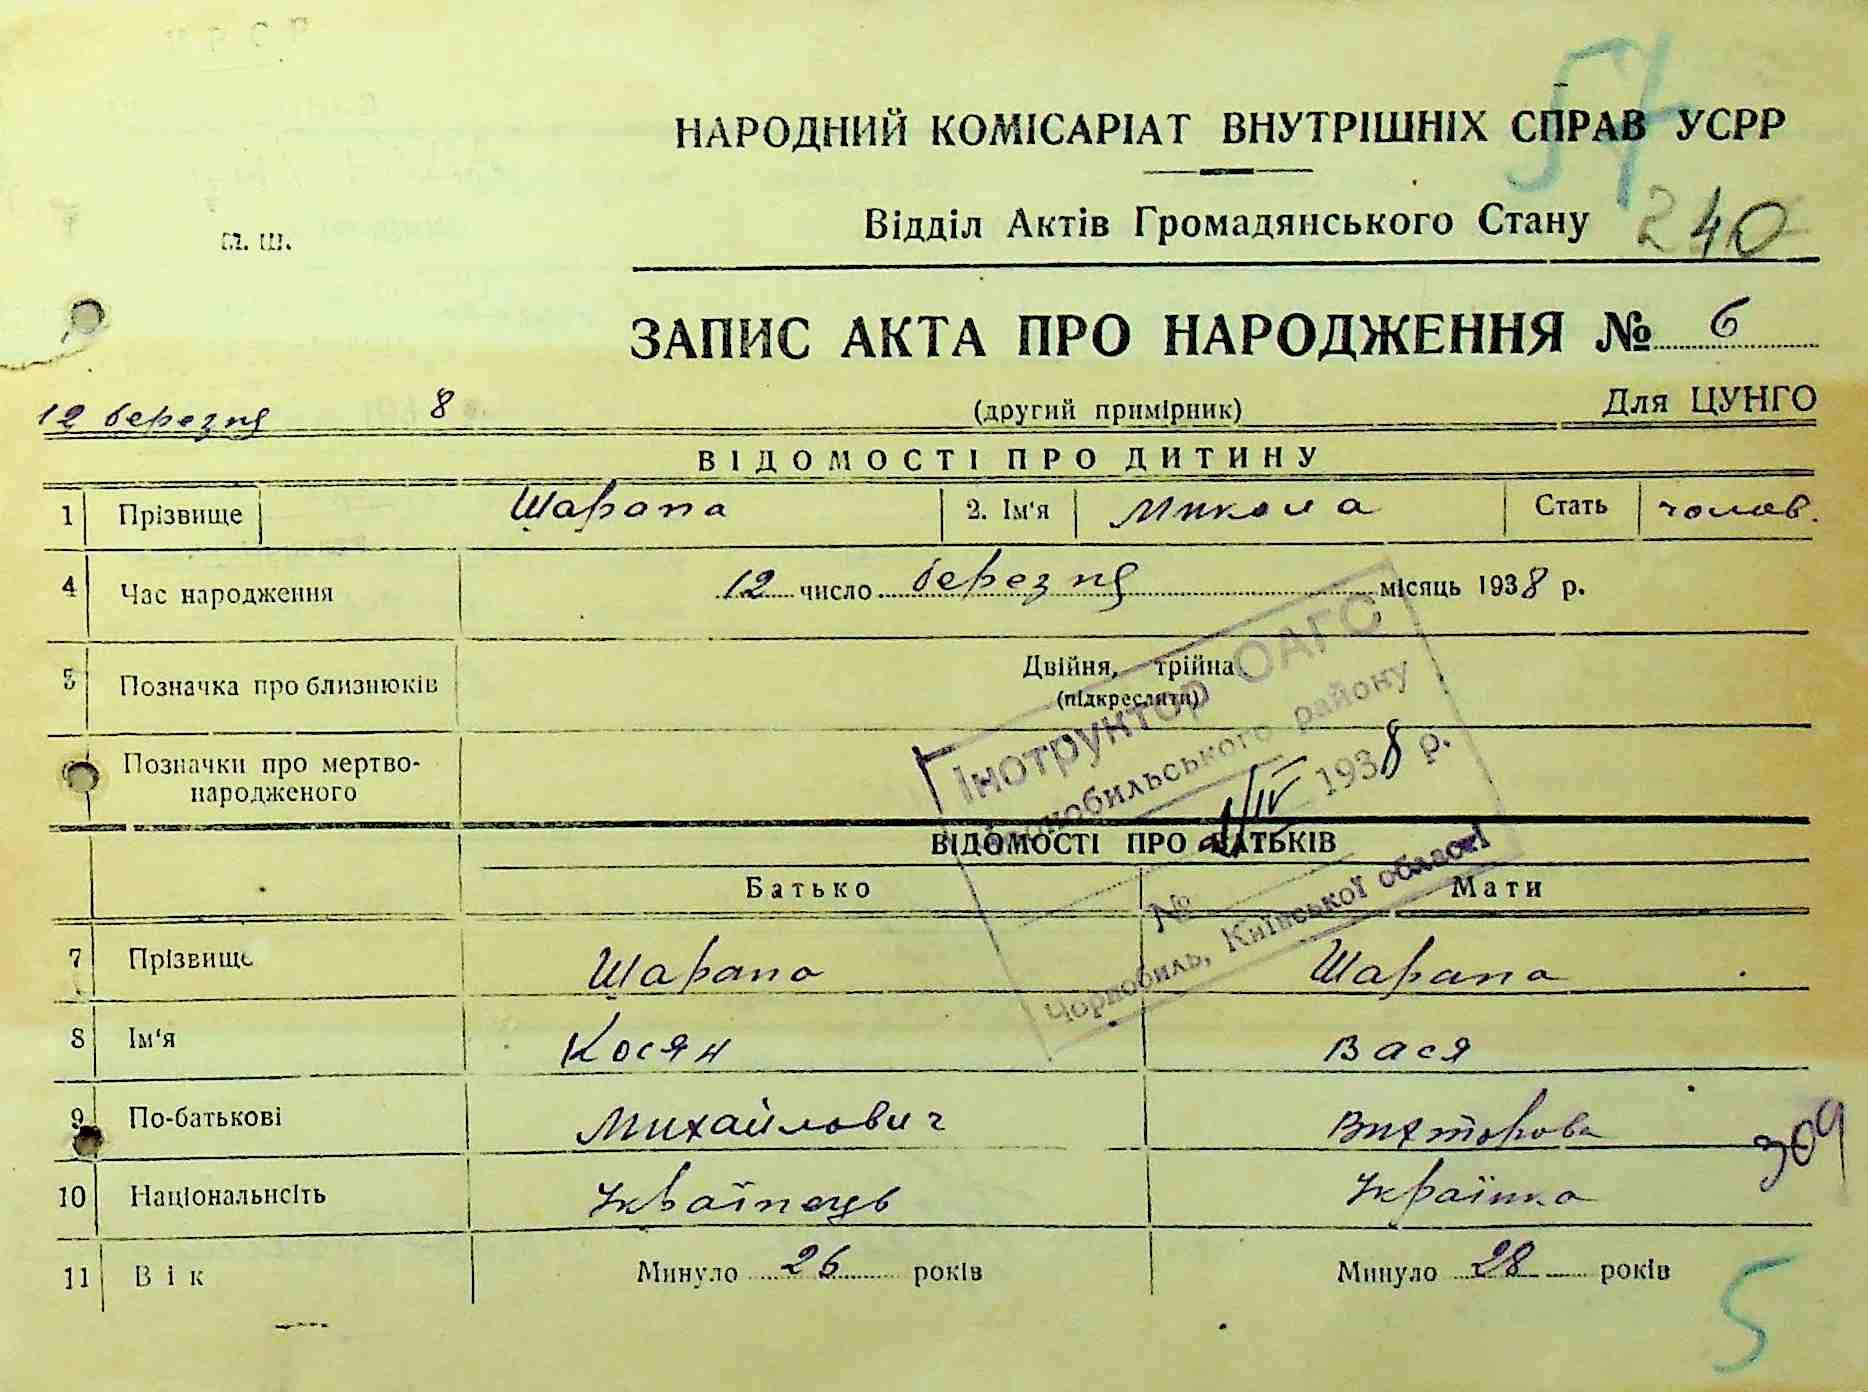 54
НАРОДНИЙ КОМІСАРІАТ ВНУТРІШНІХ СПРАВ УСРР
Відділ Актів Громадянського Стану 240
М. Ш.
ЗАПИС АКТА ПРО НАРОДЖЕННЯ № 6
12 березня 8 (другий примірник) Для ЦУНГО
ВІДОМОСТІ ПРО ДИТИНУ
1 Прізвище Шарапа 2. Ім'я Микола Стать чолов.
4 Час народження 12 число березня місяць 1938 р.
5 Позначка про близнюків Двійня, трійна
(підкреслити)
Позначки про мертво-
народженого
Інструктор ОАГС
Чорнобильського району
1/IV 1938 р.
№
Чорнобиль, Київської області
ВІДОМОСТІ ПРО БАТЬКІВ
Батько Мати
7 Прізвище Шарапа Шарапа
8 Ім'я Косян Вася
9 По-батькові Михайлович Вихторова
309
10 Національнсіть Українець Українка
11 Вік Минуло 26 років Минуло 28 років
5